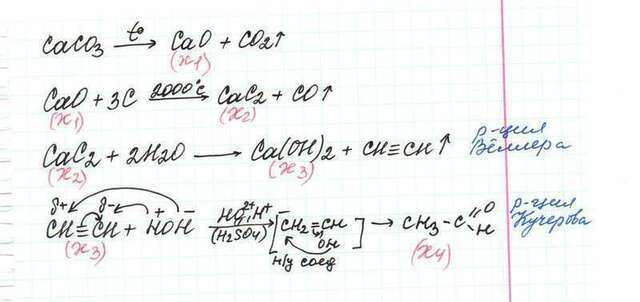 CaCO3 —t°→ CaO + CO2↑
(X1)
CaO + 3C —2000°C→ CaC2 + CO↑
(X1) (X2)
CaC2 + 2H2O ⟶ Ca(OH)2 + CH≡CH↑ р-ция Вёллера
(X2) (X3)
δ+ δ-
CH≡CH + HOH —Hg2+, H+ (H2SO4)→ [CH2=CH OH] → CH3-C=O H р-ция Кучерова
(X3) н/у соед (X4)